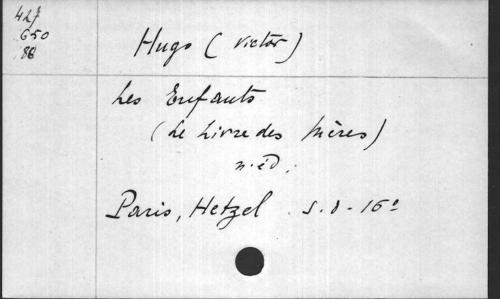 427
650
88
Hugo (Victor)
Les Enfants
(Le Livre des Mères)
n. éd.
Paris, Hetzel s.d - 16°